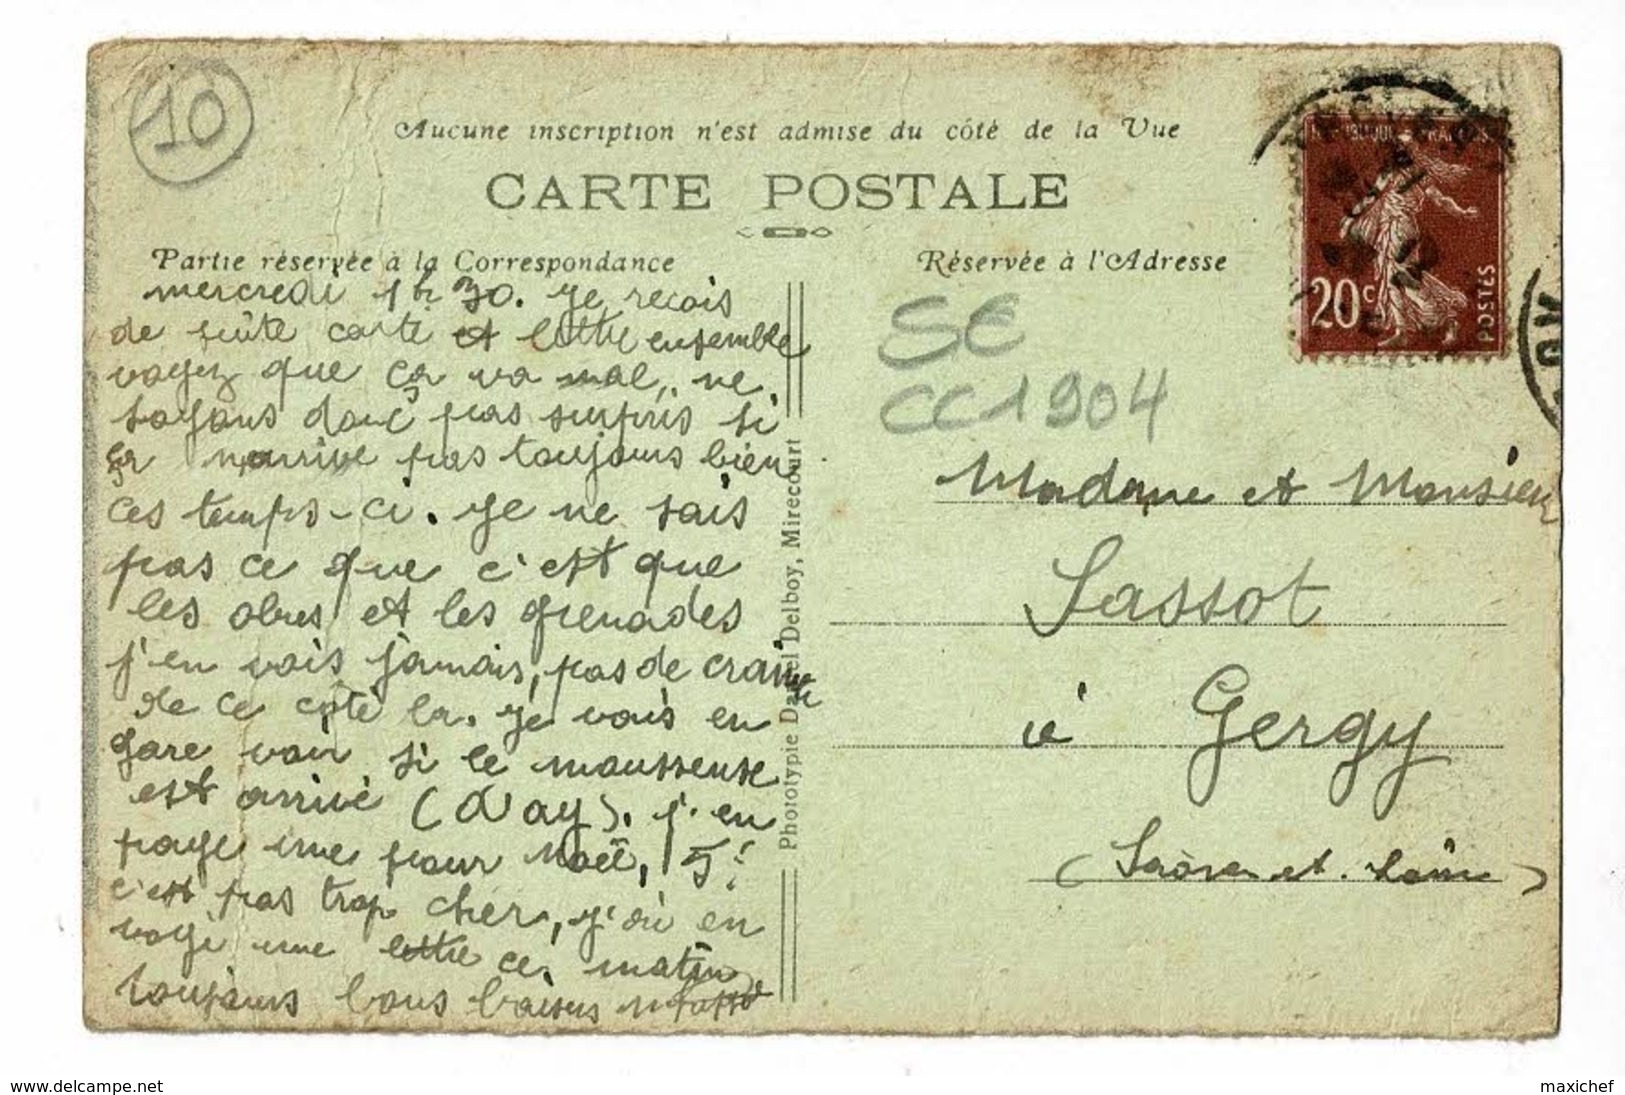 10
Aucune inscription n'est admise du côté de la Vue
CARTE POSTALE
Partie réservée à la Correspondance
Réservée à l'Adresse
mercredi 1h 30. Je recois
de suite carte et lettre ensemble
voyez que ça va mal, ne
soyons donc pas surpris si
ça n'arrive pas toujours bien
ces temps-ci. Je ne sais
pas ce que c'est que
les obus et les grenades
j'en vois jamais, pas de crainte
de ce côté la. Je vais en
gare voir si le mousseuse
est arrivé (Day). j'en
paye une pour Noël, 5f
c'est pas trop cher, j'ai en
voyé une lettre ce matin
toujours bons baisers
Phototypie Daniel Delboy, Mirecourt
SE
CC1904
Madame et Monsieur
Sassot
à Gergy
(Saône et Loire)
20c
POSTES
www.delcampe.net
maxichef